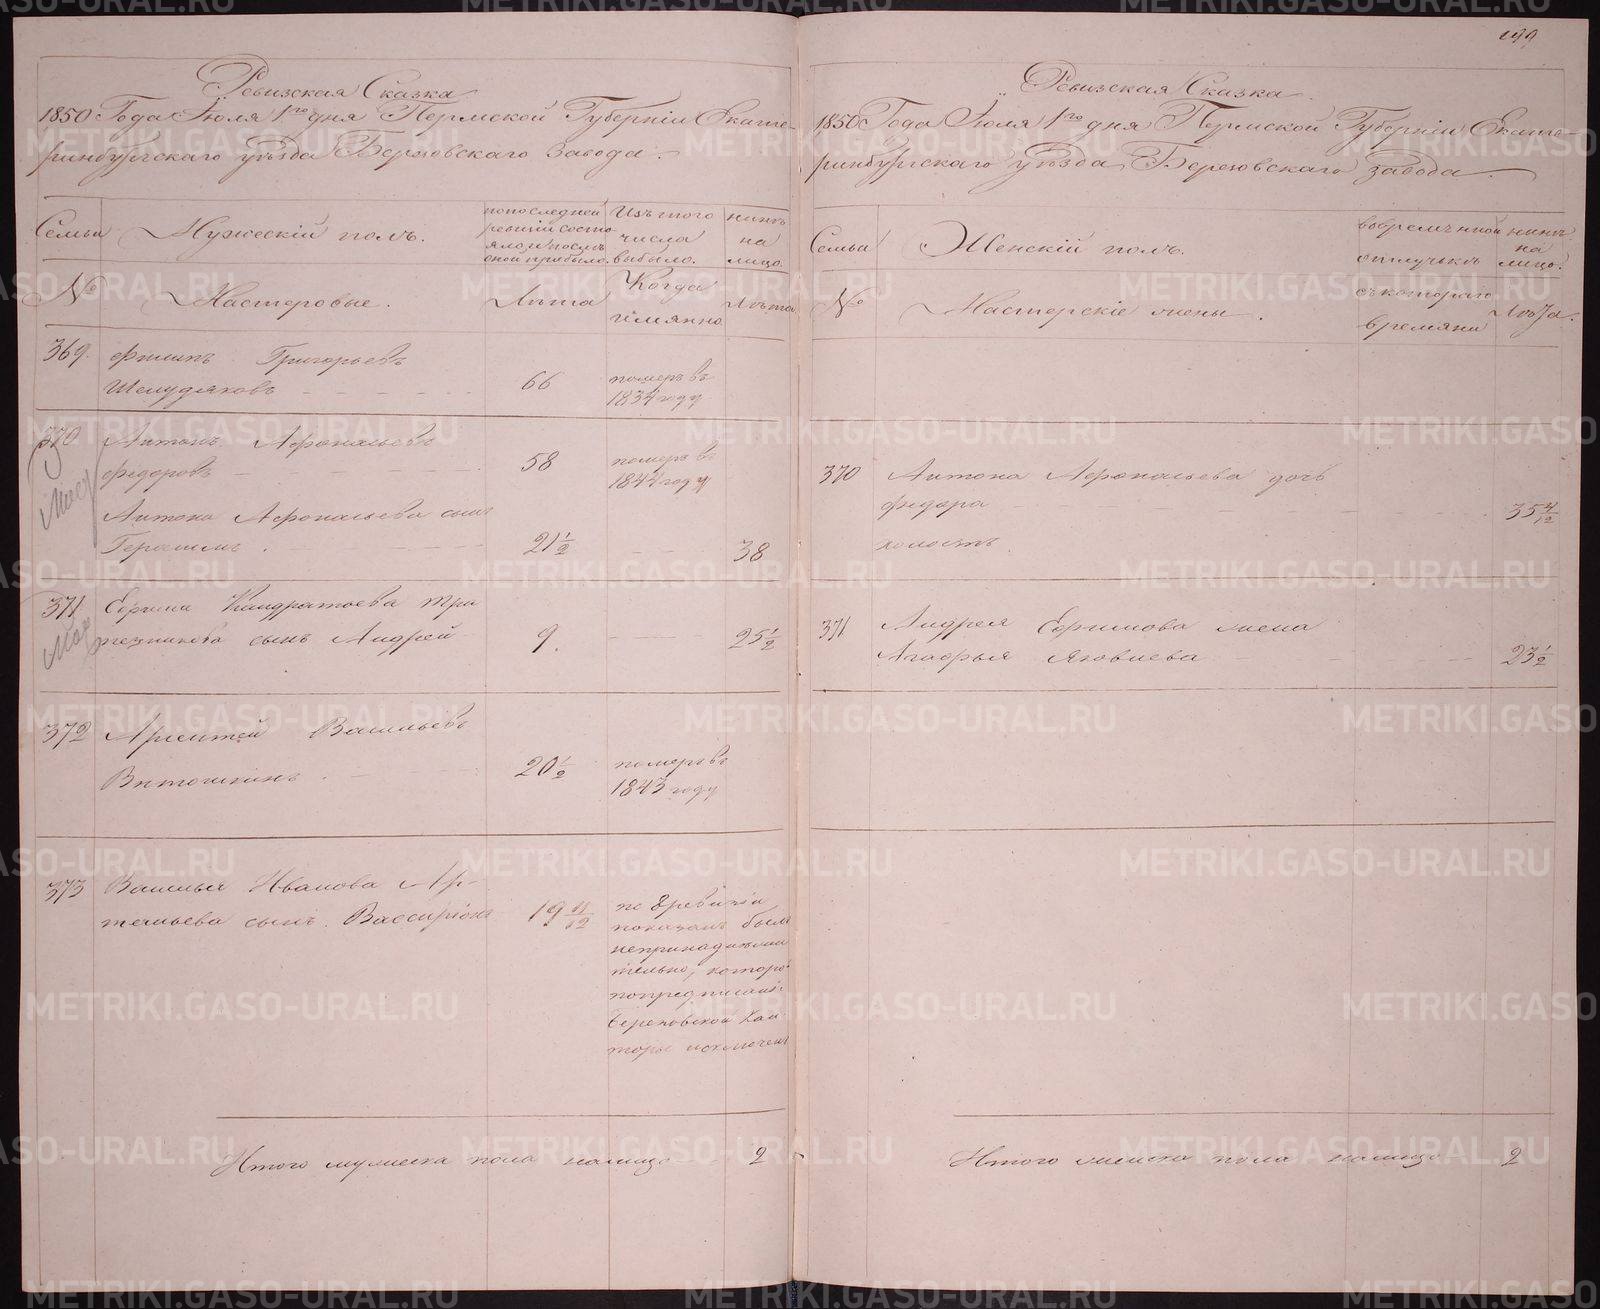 Ревизская Сказка
1850 Года Июля 1го дня Пермской Губернiи Екате-
ринбургскаго уѣзда Березовскаго завода.
Семьи
Мужескiй полъ.
попоследней
ревизiи состо
яло и послѣ
оной прибыло.
Изъ того
числа
выбыло.
нынѣ
на
лицо.
№
Мастеровые.
Лѣта
Когда
имянно
Лѣта
369. Филипъ Григорьевъ
Шелудяковъ 66 померъ въ
1834 году
370 Антонъ Афонасьевъ
Федоровъ 58 померъ въ
1844 году
Антона Афонасьева сынъ
Герасимъ 21 1/2 38
371 Ефима Кондратьева Тра
пезникова сынъ Андрей 9. 25 1/2
372 Арсентей Васильевъ
20 1/2 померъ въ
1843 году
373 Василья Иванова Ар-
темьева сынъ Виссарiонъ 19 11/12 по 8 ревизiи
показанъ былъ
непринадлежи
тельно, которо
попредписанi
Березовской Кон
торы исключенъ
Итого мужеска пола налицо 2
199
Ревизская Сказка
1850 Года Июля 1го дня Пермской Губернiи Екате-
ринбургскаго уѣзда Березовскаго завода.
Семьи
Женскiй полъ.
вовременной
отлучкѣ
нынѣ
на
лицо.
№
Мастерскiе жены.
съкотораго
времяни
Лѣта.
370 Антона Афонасьева дочь
Федора 35 4/12
холостъ
371 Андрея Ефимова жена
Агафья Яковлева 23 1/2
Итого женска пола налицо 2
METRIKI.GASO-URAL.RU